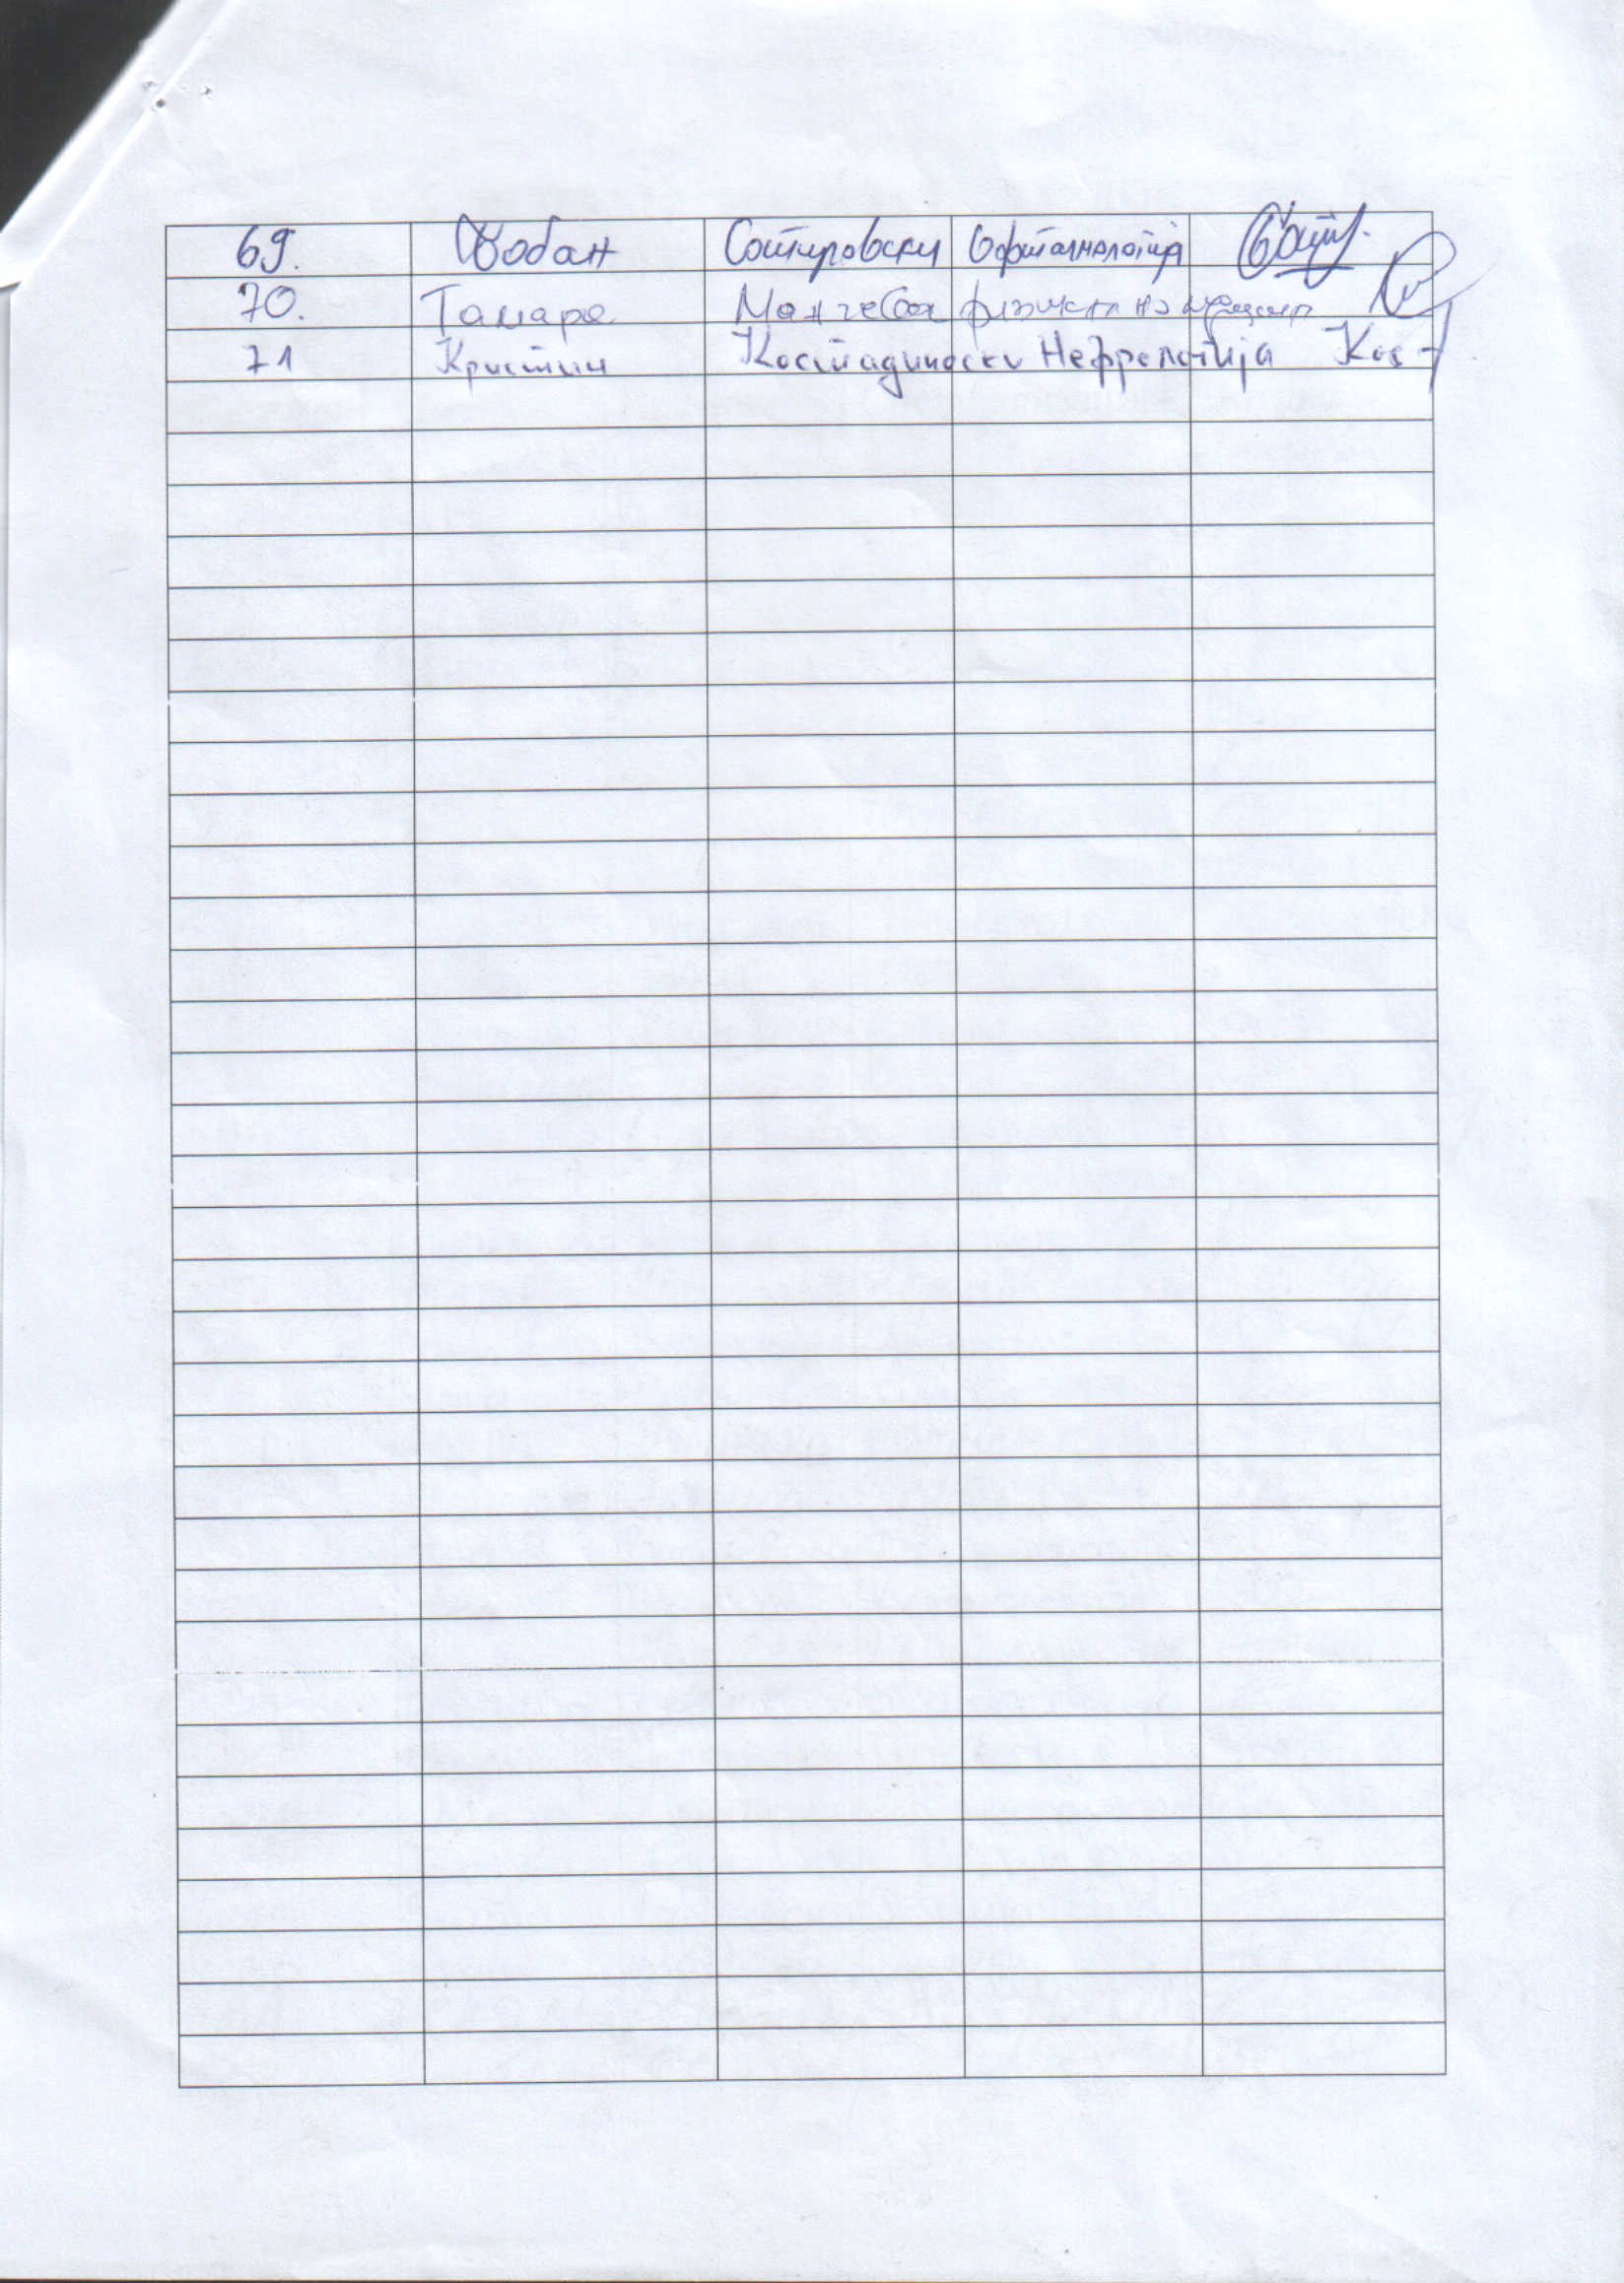 69. Сотировски Офталмологија
70. Тамара Манчева физикална
71 Кристин Костадиноски Нефрологија Кос